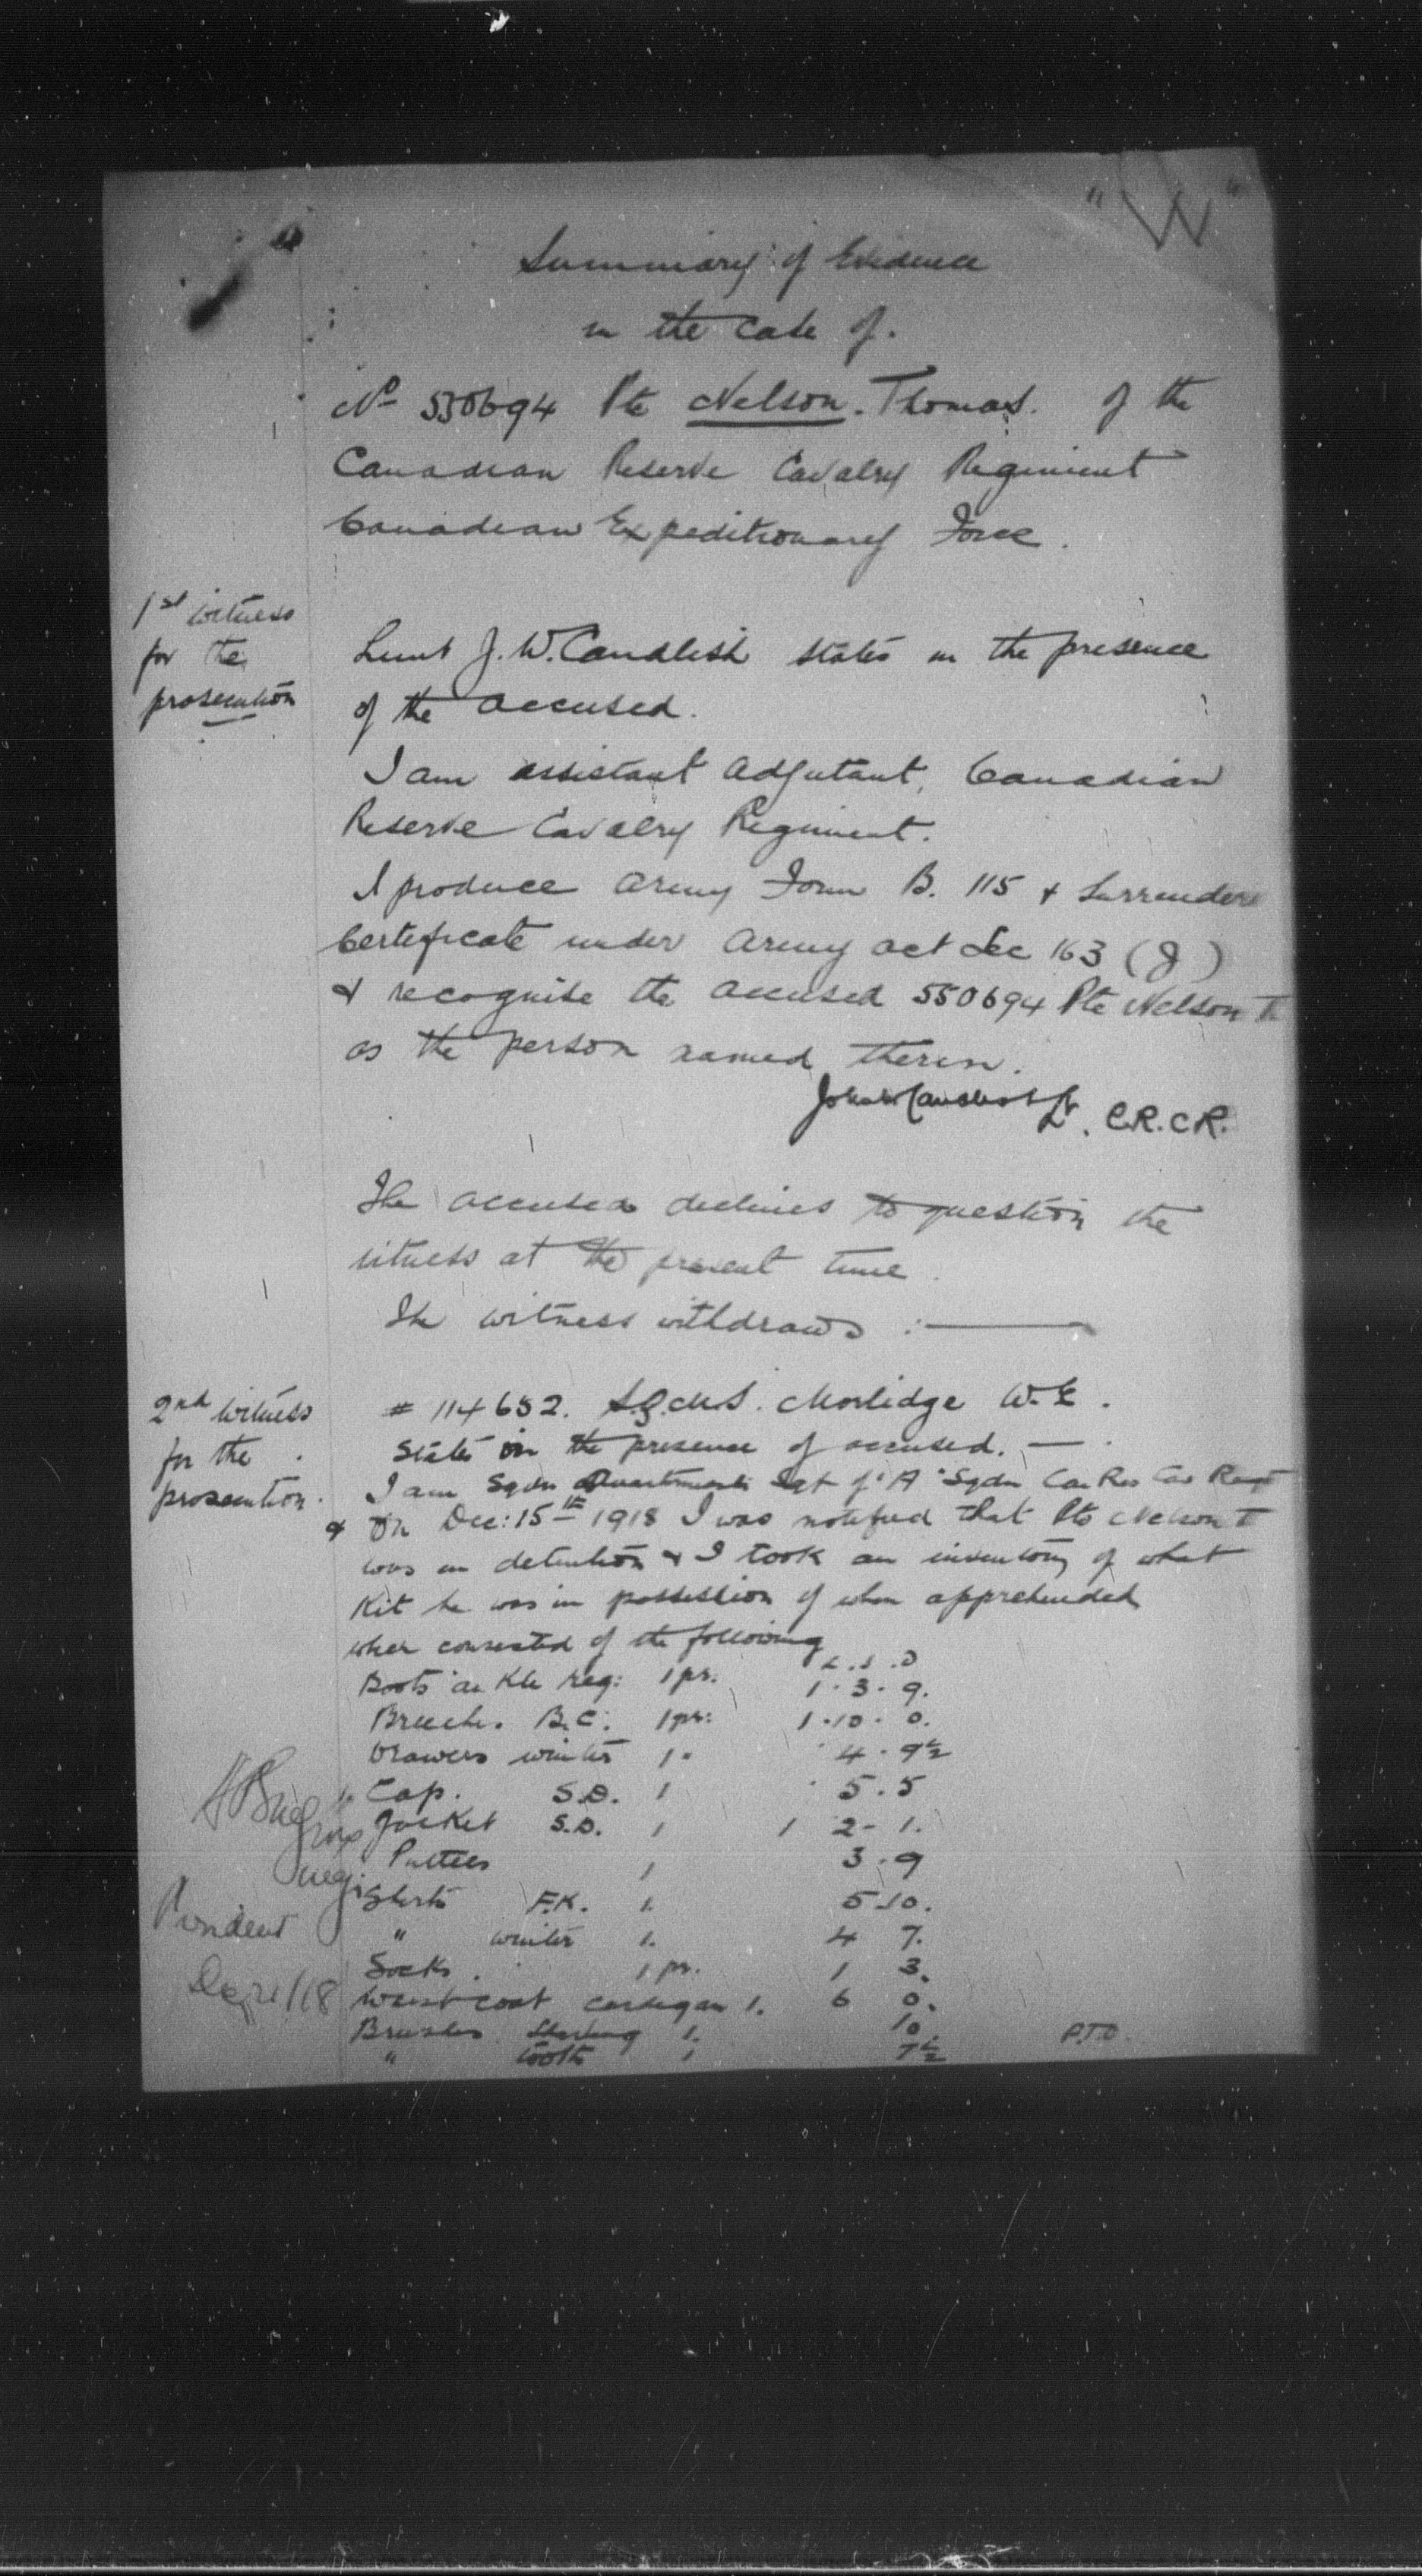 "W"
Summary of Evidence
in the Case of.
No 550694 Pte Nelson. Thomas. of the
Canadian Reserve Cavalry Regiment
Canadian Expeditionary Force.
1st witness
for the
prosecution
Lieut J. W. Candlish states in the presence
of the accused.
I am assistant adjutant, Canadian
Reserve Cavalry Regiment.
I produce Army Form B. 115 & Surrender
Certificate under Army Act Sec 163 (J)
& recognise the accused 550694 Pte Nelson T
as the person named therin.
Lt. C.R.C.R.
The accused declines to question the
witness at the present time.
The witness withdraws :—
2nd witness
for the
prosecution.
# 114652. S.Q.M.S. Morlidge W.E.
States in the presence of accused. —
I am Sqdn Quartermaster Sgt of "A" Sqdn Can Res Cav Regt
& On Dec: 15th 1918 I was notified that Pte Nelson T
was in detention & I took an inventory of what
Kit he was in possession of when apprehended
wher consisted of the following
£. S. D
Boots ankle reg: 1 pr. 1. 3. 9.
Breech. B.C. 1 pr: 1. 10. 0.
Drawers winter 1. 4. 9½
Cap. S.D. 1 5. 5
Jacket S.D. 1 1 2 - 1.
Puttees 1 3. 9
Shirts F.K. 1. 5 10.
" winter 1. 4 7.
Socks. 1 pr. 1 3.
Waistcoat cardegan 1. 6 0.
Brushes Shaving 1. 10
" tooth 1 7½
President
P.T.O.